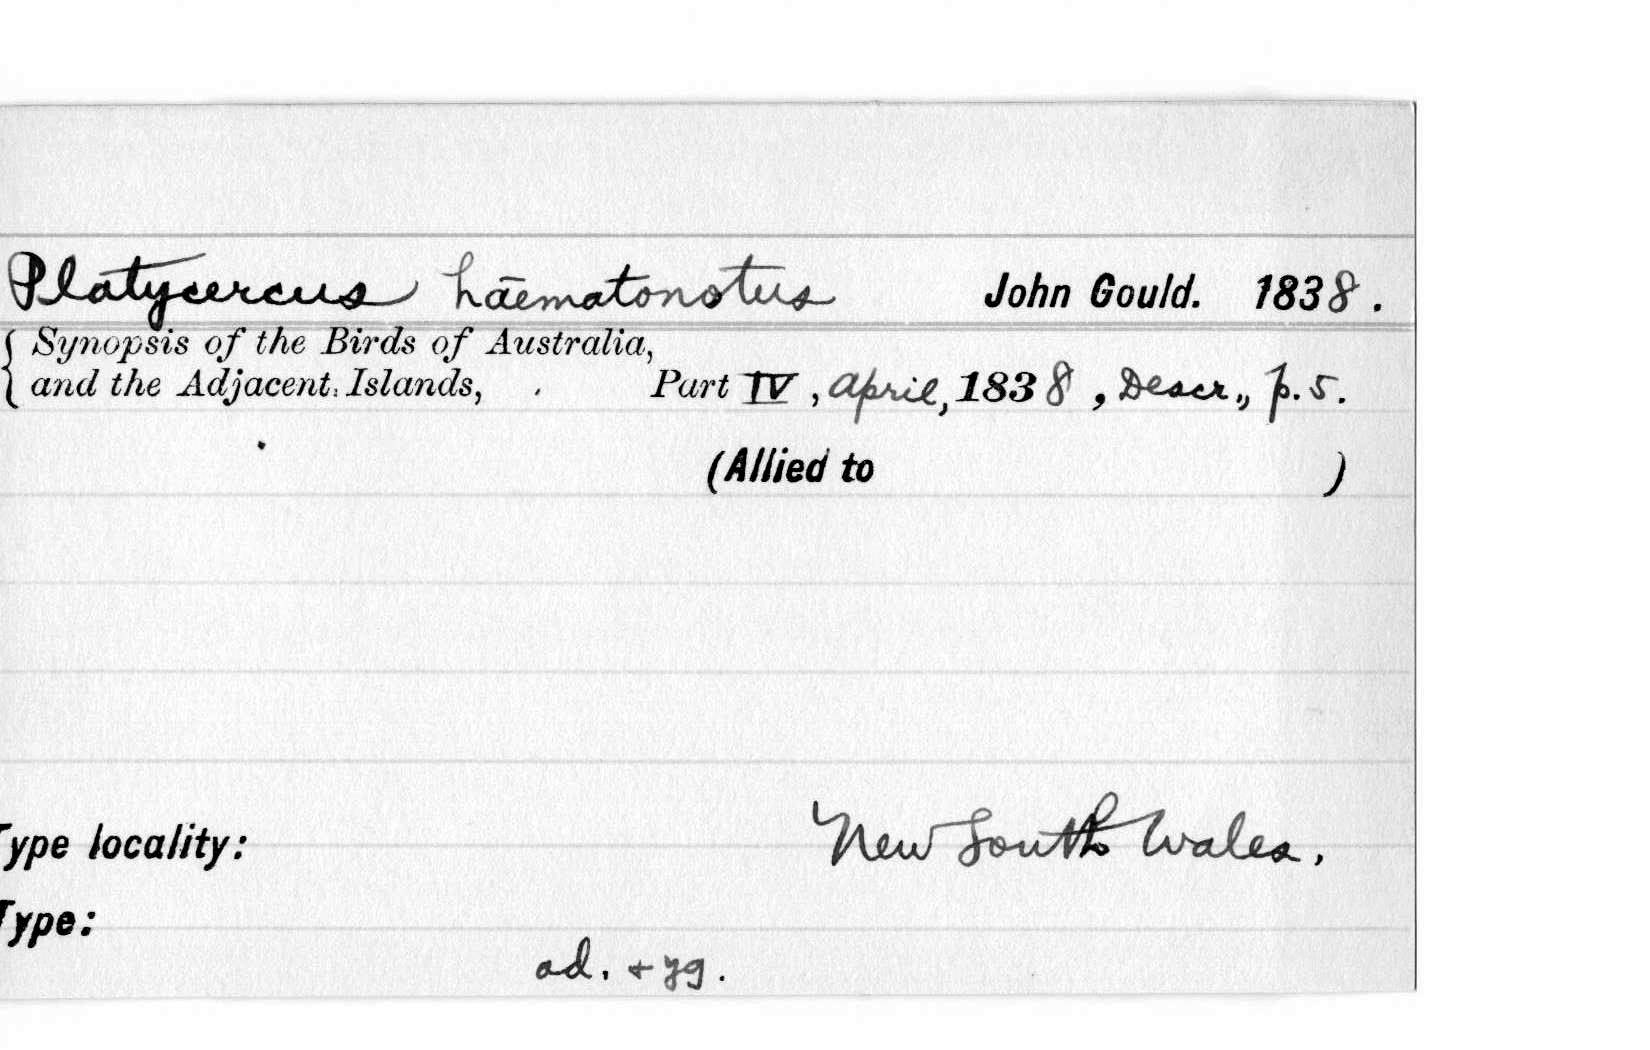 Platycercus haematonotus John Gould. 1838.
Synopsis of the Birds of Australia,
and the Adjacent Islands, Part IV, April, 1838, Descr., p. 5.
(Allied to )
Type locality: New South Wales.
Type:
ad. + yg.